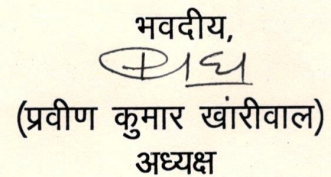 भवदीय,
(प्रवीण कुमार खांरीवाल)
अध्यक्ष